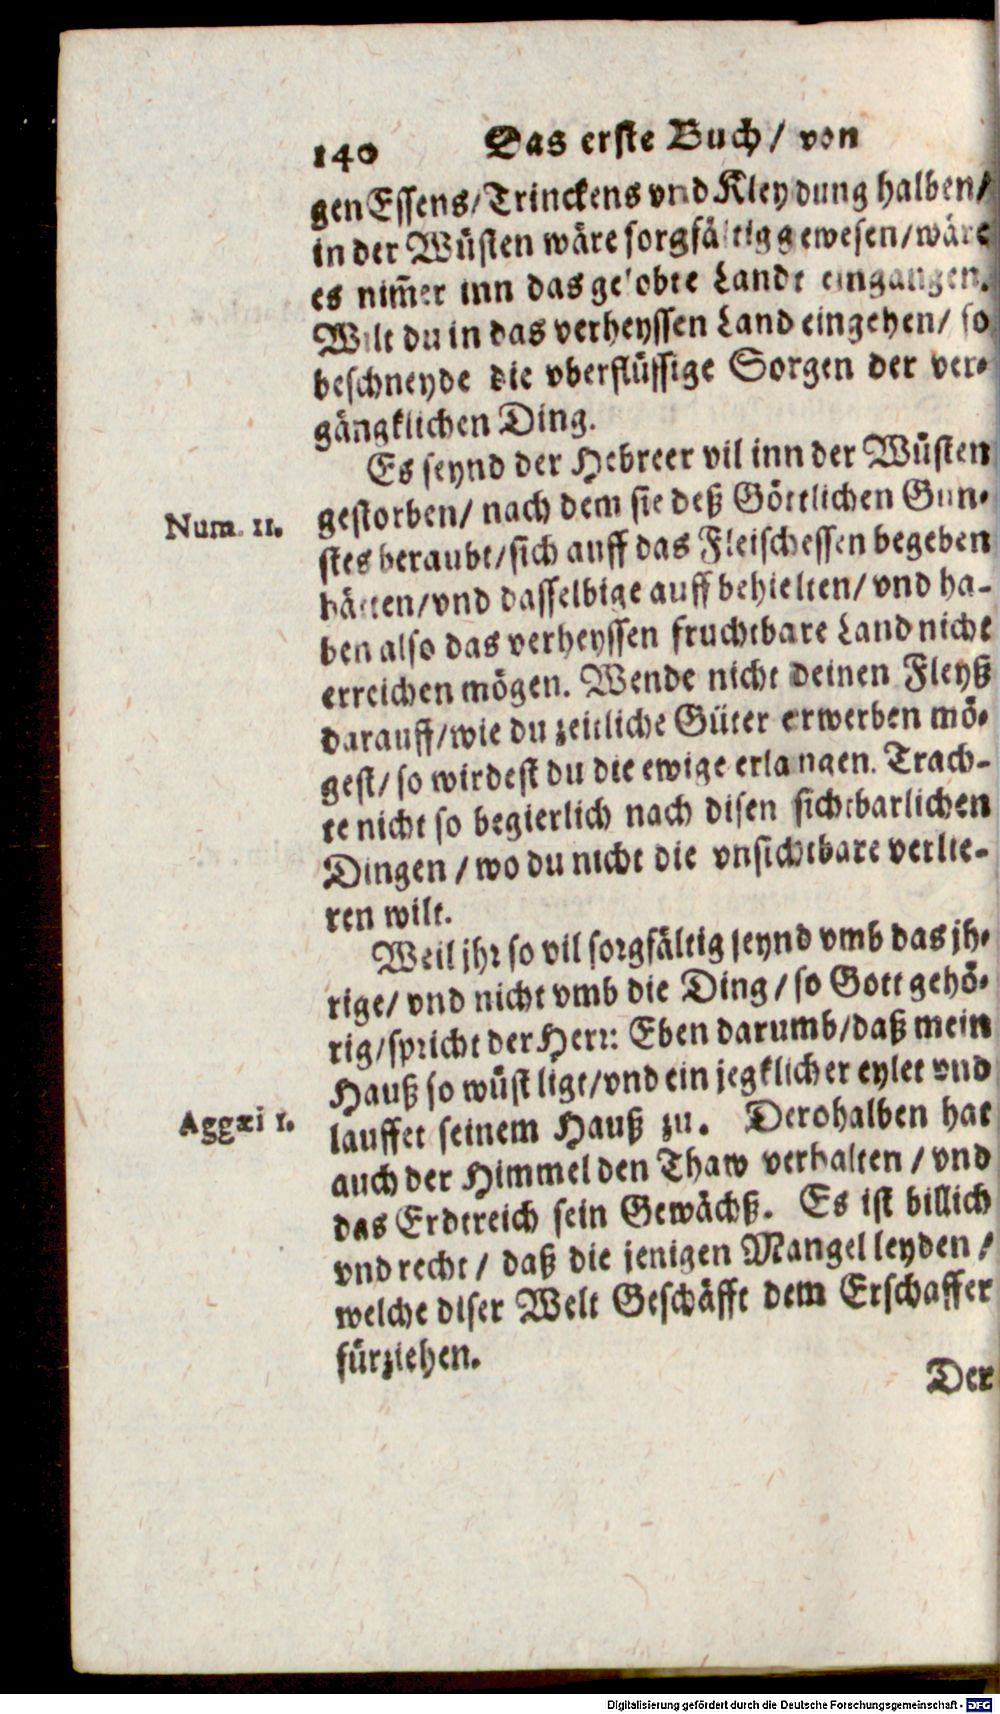 140 Das erste Buch/ von
gen Essens/ Trinckens vnd Kleydung halben/
in der Wüsten wäre sorgfältig gewesen/ wäre
es nim̃er inn das gelobte Landt eingangen.
Wilt du in das verheyssen Land eingehen/ so
beschneyde die vberflüssige Sorgen der ver-
gängklichen Ding.
Es seynd der Hebreer vil inn der Wüsten
Num. 11. gestorben/ nach dem sie deß Göttlichen Gun-
stes beraubt/ sich auff das Fleischessen begeben
hätten/ vnd dasselbige auff behielten/ vnd ha-
ben also das verheyssen fruchtbare Land nicht
erreichen mögen. Wende nicht deinen Fleyß
darauff/ wie du zeitliche Güter erwerben mö-
gest/ so wirdest du die ewige erlangen. Trach-
te nicht so begierlich nach disen sichtbarlichen
Dingen/ wo du nicht die vnsichtbare verlie-
ren wilt.
Weil jhr so vil sorgfältig seynd vmb das jh-
rige/ vnd nicht vmb die Ding/ so Gott gehö-
rig/ spricht der Herr: Eben darumb/ daß mein
Hauß so wüst ligt/ vnd ein jegklicher eylet vnd
Aggæi 1. lauffet seinem Hauß zu. Derohalben hat
auch der Himmel den Thaw verhalten/ vnd
das Erdtreich sein Gewächß. Es ist billich
vnd recht/ daß die jenigen Mangel leyden/
welche diser Welt Geschäfft dem Erschaffer
fürziehen.
Der
Digitalisierung gefördert durch die Deutsche Forschungsgemeinschaft - DFG